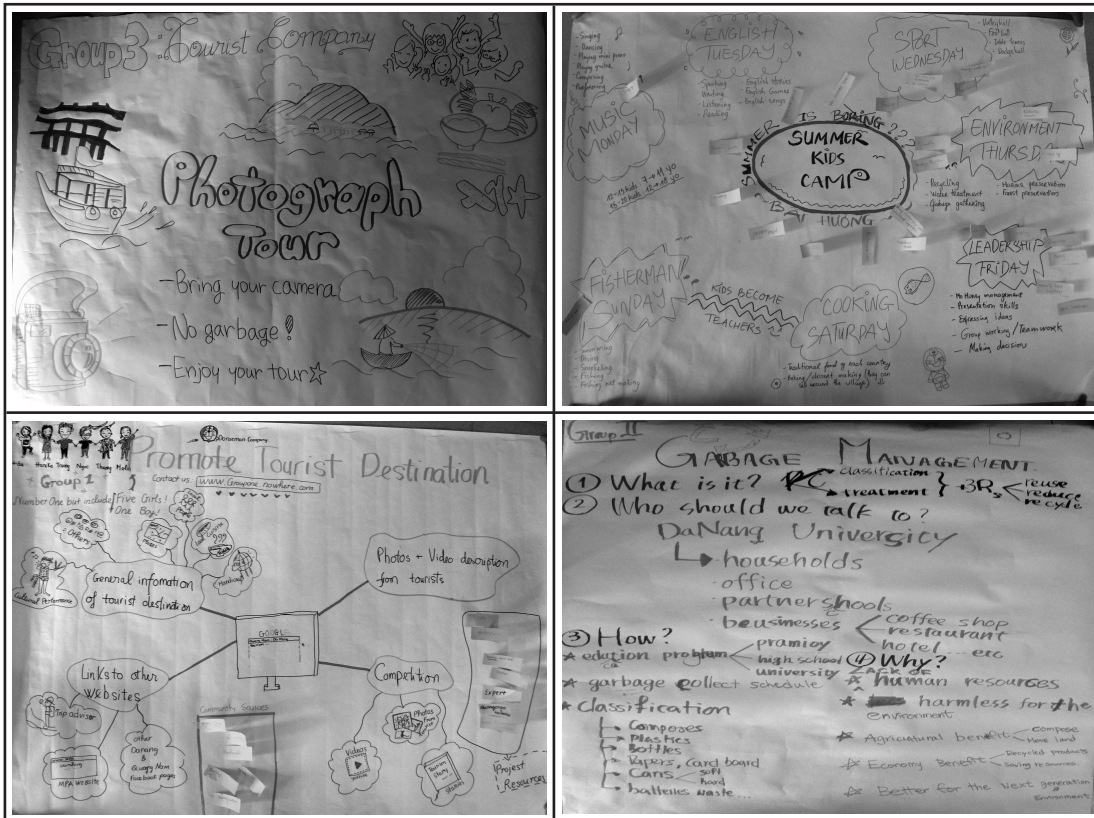 Group 3: Tourist Company
Photograph
Tour
-Bring your camera
-No garbage!
-Enjoy your tour
-Singing
-Dancing
-Playing mini piano
-Playing guitar
-Composing
-Performing
MUSIC
MONDAY
12-15 kids 7→11 yo
15-20 kids 12→18 yo
ENGLISH
TUESDAY
-Speaking
-Writing
-Listening
-Reading
-English stories
-English Games
-English songs
SPORT
WEDNESDAY
-Volleyball
-Football
-Table tennis
-Dodgeball
SUMMER IS BORING???
SUMMER
KIDS
CAMP
BÃI HƯƠNG
ENVIRONMENT
THURSD
-Recycling
-Water treatment
-Garbage gathering
-Marine preservation
-Forest preservation
LEADERSHIP
FRIDAY
-Money management
-Presentation skills
-Expressing ideas
-Group working/Teamwork
-Making decisions
COOKING
SATURDAY
-Traditional food of each country
-Baking/dessert making (they can
sell around the village)
KIDS BECOME
TEACHERS
FISHERMAN
SUNDAY
-Swimming
-Diving
-Snorkeling
-Fishing
-Fishing net making
Doraemon Company
Trang Ngoc Thuong
Promote Tourist Destination
Group 1
Contact us: www.Groupone.nowhere.com
Number One but include Five Girls!
One Boy!
People
Photos
Others
Handicraft
Cultural Performance
General infomation
of tourist destination
Photos + Video description
from tourists
GOOGL
Links to other
Websites
Trip advisor
MPA WEBSITE
other
Danang
&
Quang Nam
Facebook pages
Community Sources
Competition
Photos
Videos
Stories
Expert
Project
Resources
Group II
GABAGE MANAGEMENT
① What is it? classification
treatment
+3Rs
reuse
reduce
recycle
② Who should we talk to?
DaNang Univergicy
households
office
partner shools
beusinesses
coffee shop
restaurant
hotel ... etc
③ How?
★ edution problem
pramioy
high school
university
★ garbage collect schedule
★ Classification
Composes
Plastics
Bottles
Papers, Card board
Cans
soft
hard
batteries waste...
④ Why?
LACK OF
★ human resources
★ harmless for the
environment
★ Agricultural benefit
compose
more land
☆ Economy Benefit
Recycled products
Saving resources
☆ Better for the next generation
& Environment